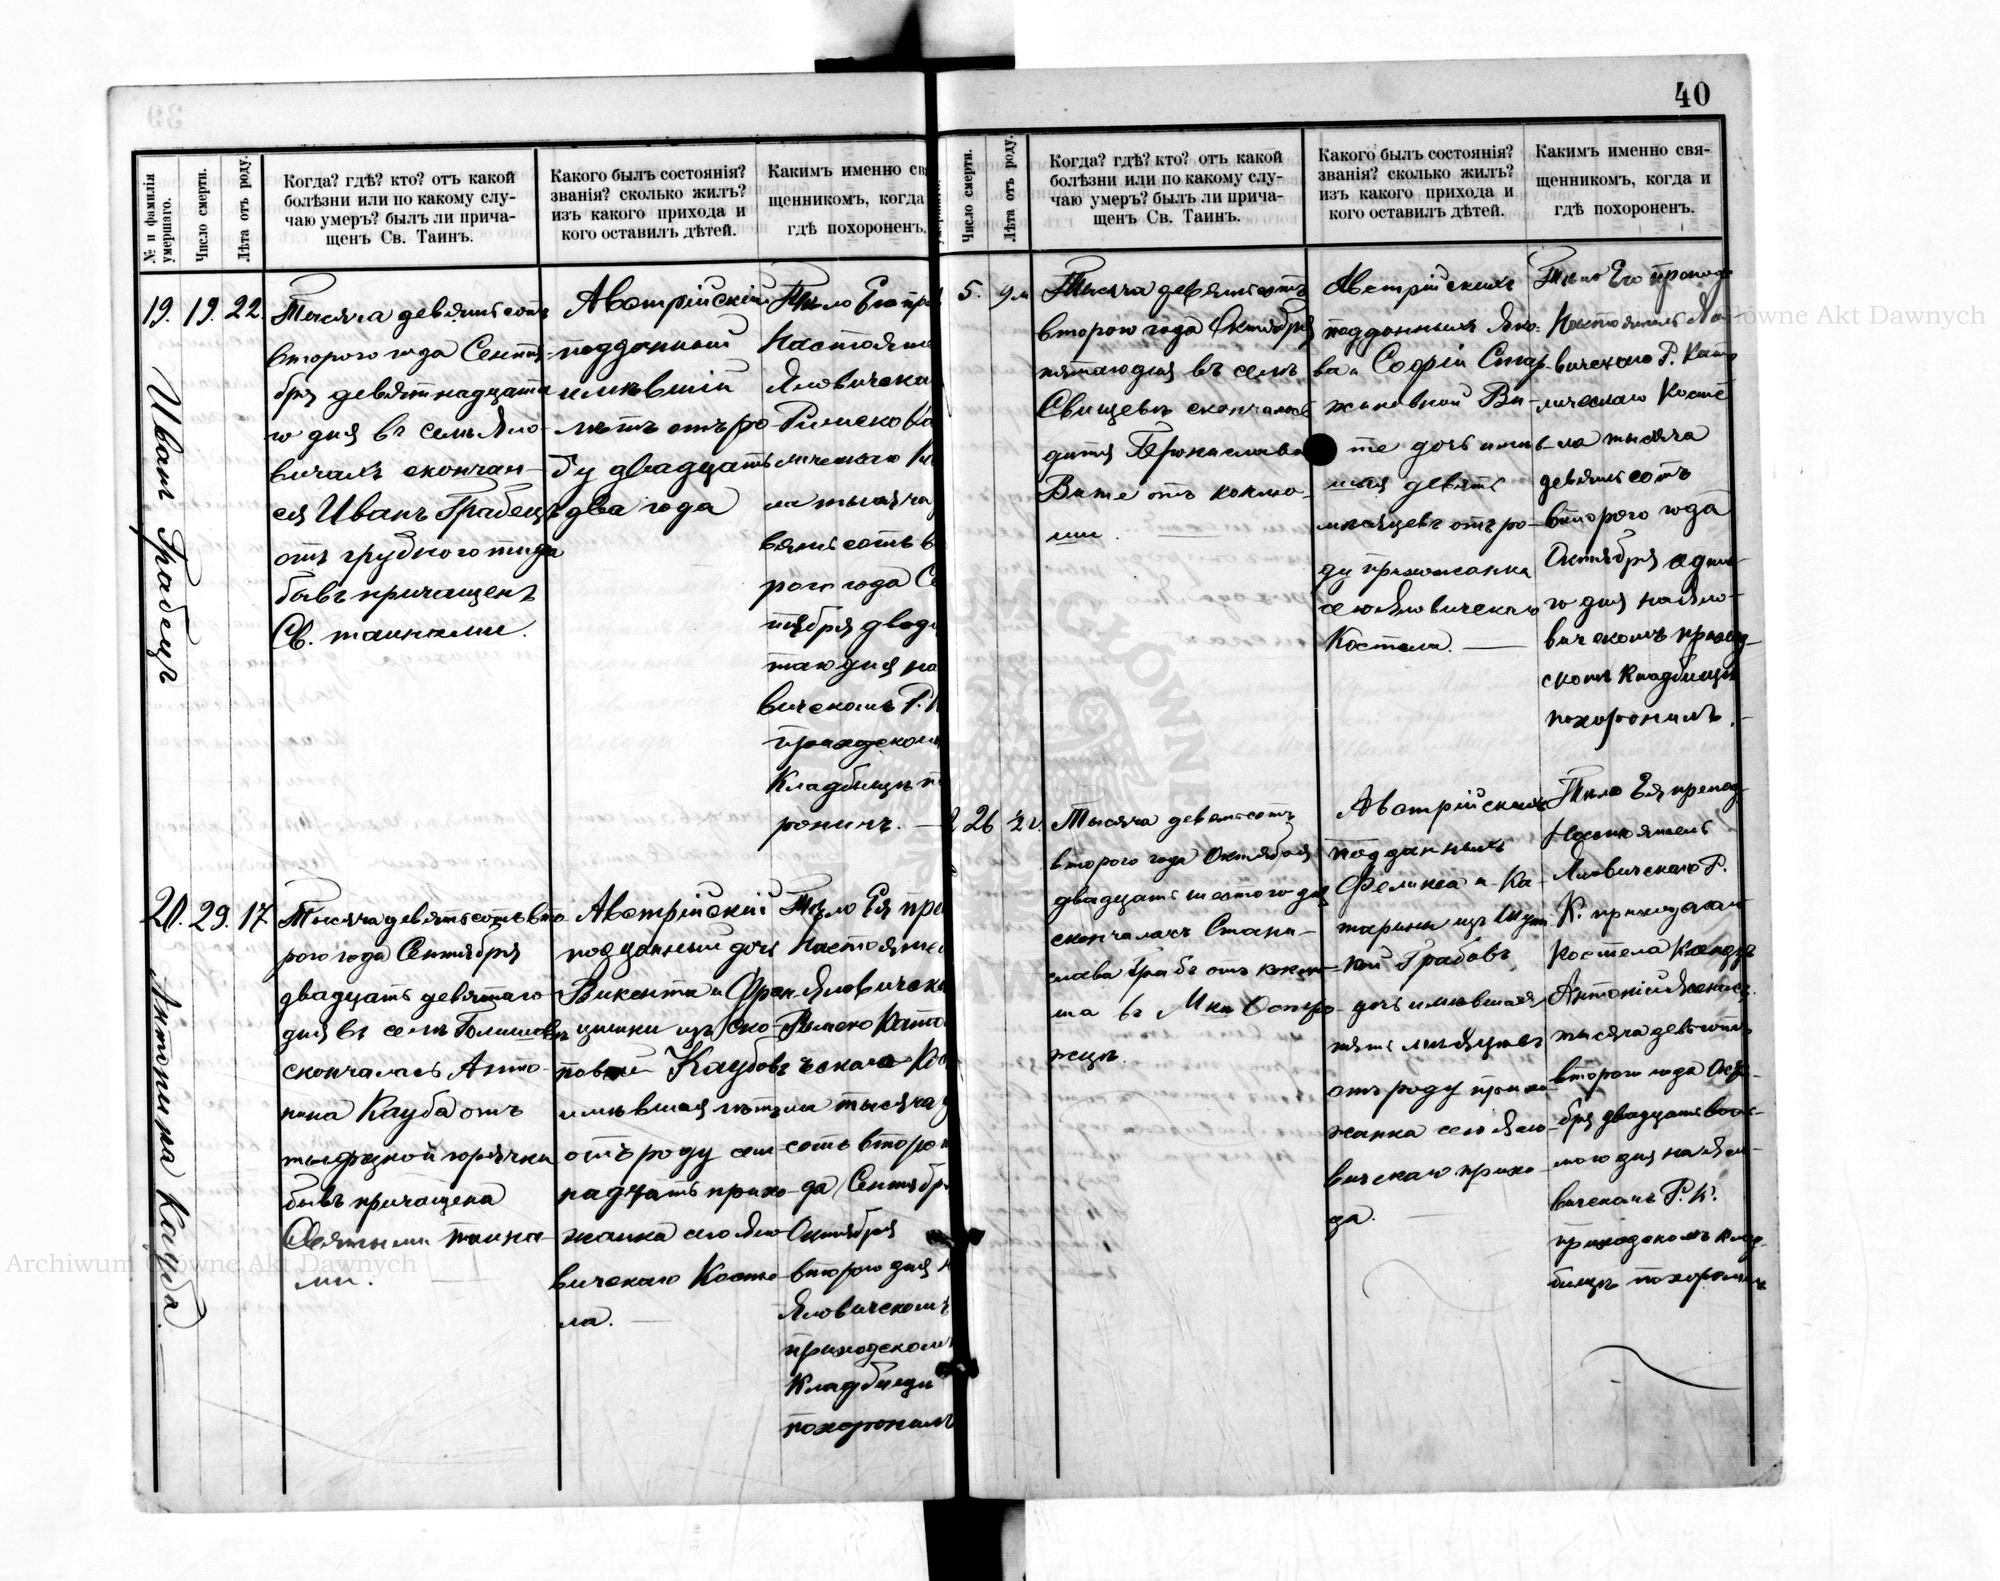 40
№ и фамилія умершаго.
Число смерти.
Лѣта отъ роду.
Когда? гдѣ? кто? отъ какой
болѣзни или по какому слу-
чаю умеръ? былъ ли прича-
щенъ Св. Таинъ.
Какого былъ состоянія?
званія? сколько жилъ?
изъ какого прихода и
кого оставилъ дѣтей.
Какимъ именно св
щенникомъ, когда
гдѣ похороненъ.
19.
Иванъ Грабецъ
19.
22.
Тысяча девятьсотъ
второго года Сентя-
бря девятнадцата-
го дня въ селѣ Яло-
вичахъ скончал-
ся Иванъ Грабецъ
отъ грудного тифа
бывъ причащенъ
Св. таинами.
Австрійскій
подданный
имѣвшій
лѣтъ отъ ро-
ду двадцать
два года
Тѣло Его пре
Настояте
Яловическа
Римско Ка
лическаго Ко
ла тысяча
вятьсотъ в
рого года Се
тября двад
таго дня на
вическомъ Р. К
приходскомъ
Кладбищѣ п
ронилъ.
20.
Антонина Кауба.
29.
17
Тысяча девятьсотъ вто
рого года Сентября
двадцать девятаго
дня въ селѣ
скончалась Анто-
нина Кауба отъ
тыфозной горячки
бывъ причащена
Святыми таина-
ми.
Австрійскій
подданный дочь
Викента и Фран-
цишки изъ
Каубовъ
имѣвшая лѣтъ
отъ роду сем
надцать прихо-
жанка сего Яло
вическаго Косте
ла.
Тѣло Ея пре
Настояте
Яловическа
Римско Като
ческаго Ко
ла тысяча д
сотъ второг
да Сентябр
Октября
второго дня н
Яловическомъ
приходскомъ
Кладбищѣ
похоронилъ
Число смерти.
Лѣта отъ роду.
Когда? гдѣ? кто? отъ какой
болѣзни или по какому слу-
чаю умеръ? былъ ли прича-
щенъ Св. Таинъ.
Какого былъ состоянія?
званія? сколько жилъ?
изъ какого прихода и
кого оставилъ дѣтей.
Какимъ именно свя-
щенникомъ, когда и
гдѣ похороненъ.
5.
9 м
Тысяча девятьсотъ
второго года Октября
пятаго дня въ селѣ
Свищевѣ скончалось
дитя Брониславa
Вите отъ коклю-
ши.
Австрійскихъ
подданныхъ Яко-
ва и Софіи
Ви-
те дочь имѣв-
шая девять
мѣсяцевъ отъ ро-
ду прихожанка
сего Яловическаго
Костела.
Тѣло Его препод
Настоятель Яло-
вическаго Р. Като
лическаго Косте
ла тысяча
девятьсотъ
второго года
Октября
го дня на Яло-
вическомъ приход-
скомъ Кладбищѣ
похоронилъ.
26
Тысяча девятьсотъ
второго года Октября
двадцать шестого дня
скончалась Стани-
слава Грабъ отъ коклю-
ша въ
Австрійскихъ
подданныхъ
Феликса и Ка-
тарины изъ
Грабовъ
дочь имѣвшая
пять мѣсяцевъ
отъ роду прихо
жанка сего Яло
вическаго прихо
да.
Тѣло Ея препод
Настоятель
Яловическаго Р.
К. приходскаго
Костела Ксендзъ
Антоній
тысяча девятьсотъ
второго года Октя-
бря двадцать вось-
мого дня на Яло-
вическомъ Р. К.
приходскомъ клад-
бищѣ похоронилъ
Archiwum Główne Akt Dawnych
Archiwum Główne Akt Dawnych